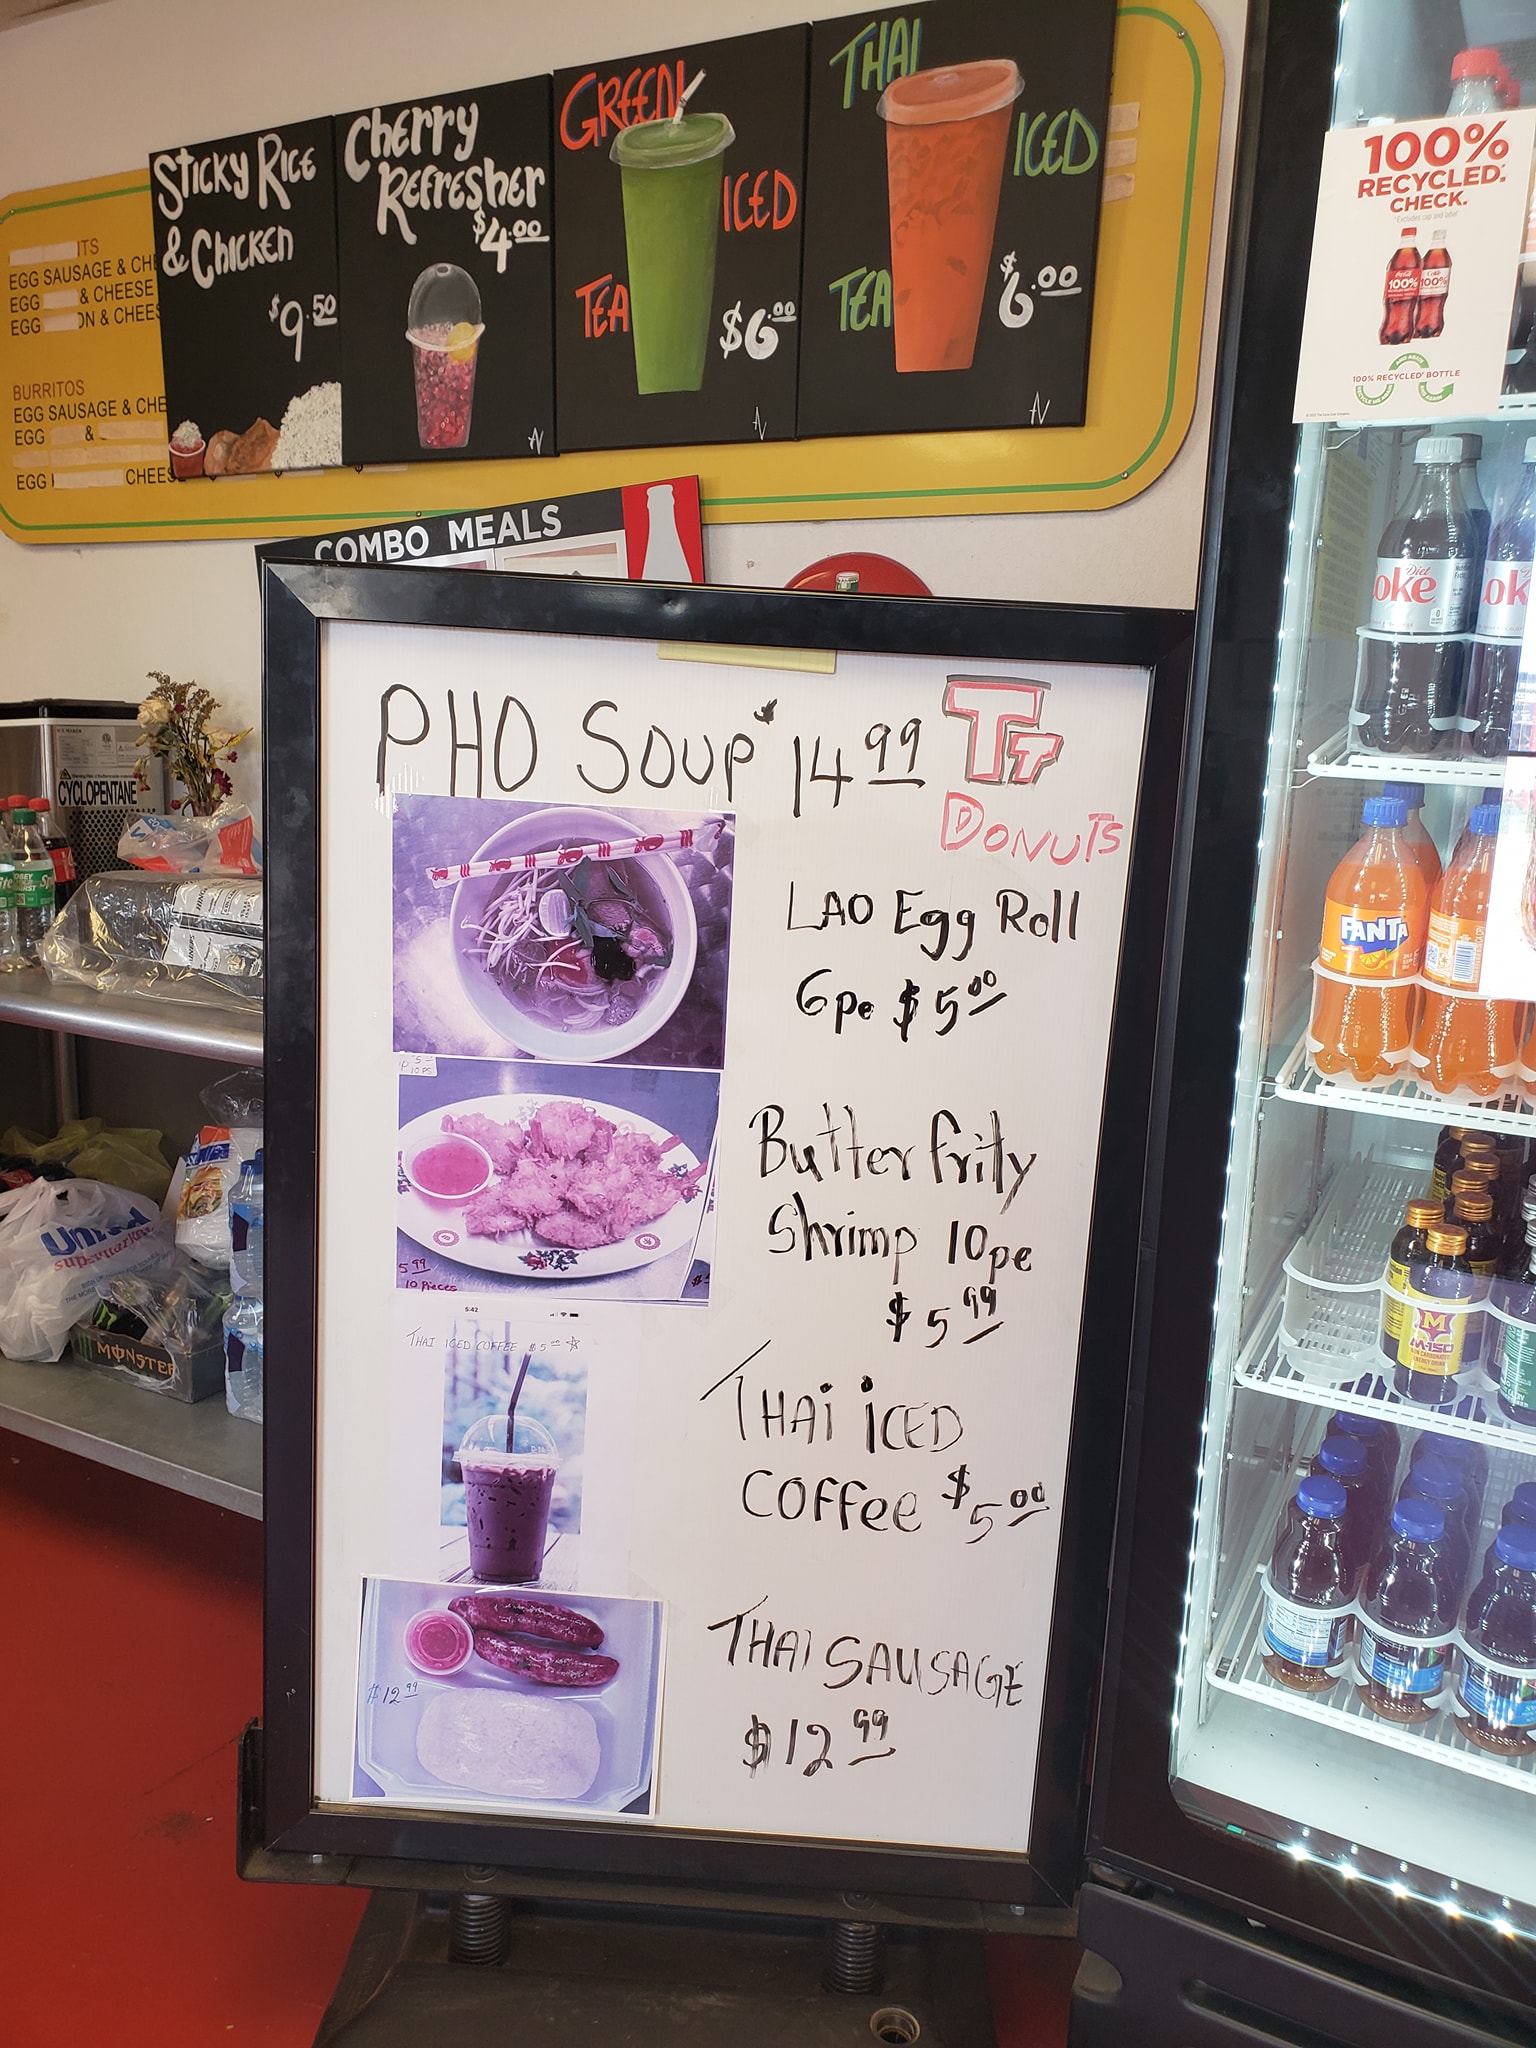 STICKY RICE
& CHICKEN
$9.50
Cherry
Refresher
$4.00
GREEN
ICED
TEA
$6.00
THAI
ICED
TEA
$6.00
ITS
EGG SAUSAGE & CH
EGG & CHEESE
EGG ON & CHEES
BURRITOS
EGG SAUSAGE & CHE
EGG &
EGG CHEESE
COMBO MEALS
100%
RECYCLED.
CHECK.
*Excludes cap and label
100% RECYCLED BOTTLE
PHO SOUP $14.99
TT
DONUTS
LAO Egg Roll
6pc $5.00
5.99
10 Pieces
Butterfrity
Shrimp 10pc
$5.99
5:42
THAI ICED COFFEE $5.00
THAI iCED
COFFee $5.00
$12.99
THAI SAUSAGE
$12.99
CYCLOPENTANE
United
supermarkets
MONSTER
Diet
oke
FANTA
M
M-150